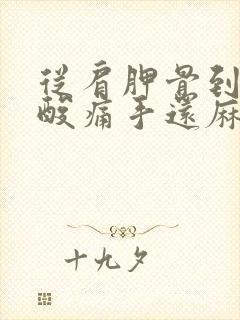 從肩胛骨到
酸痛手還麻
十九夕